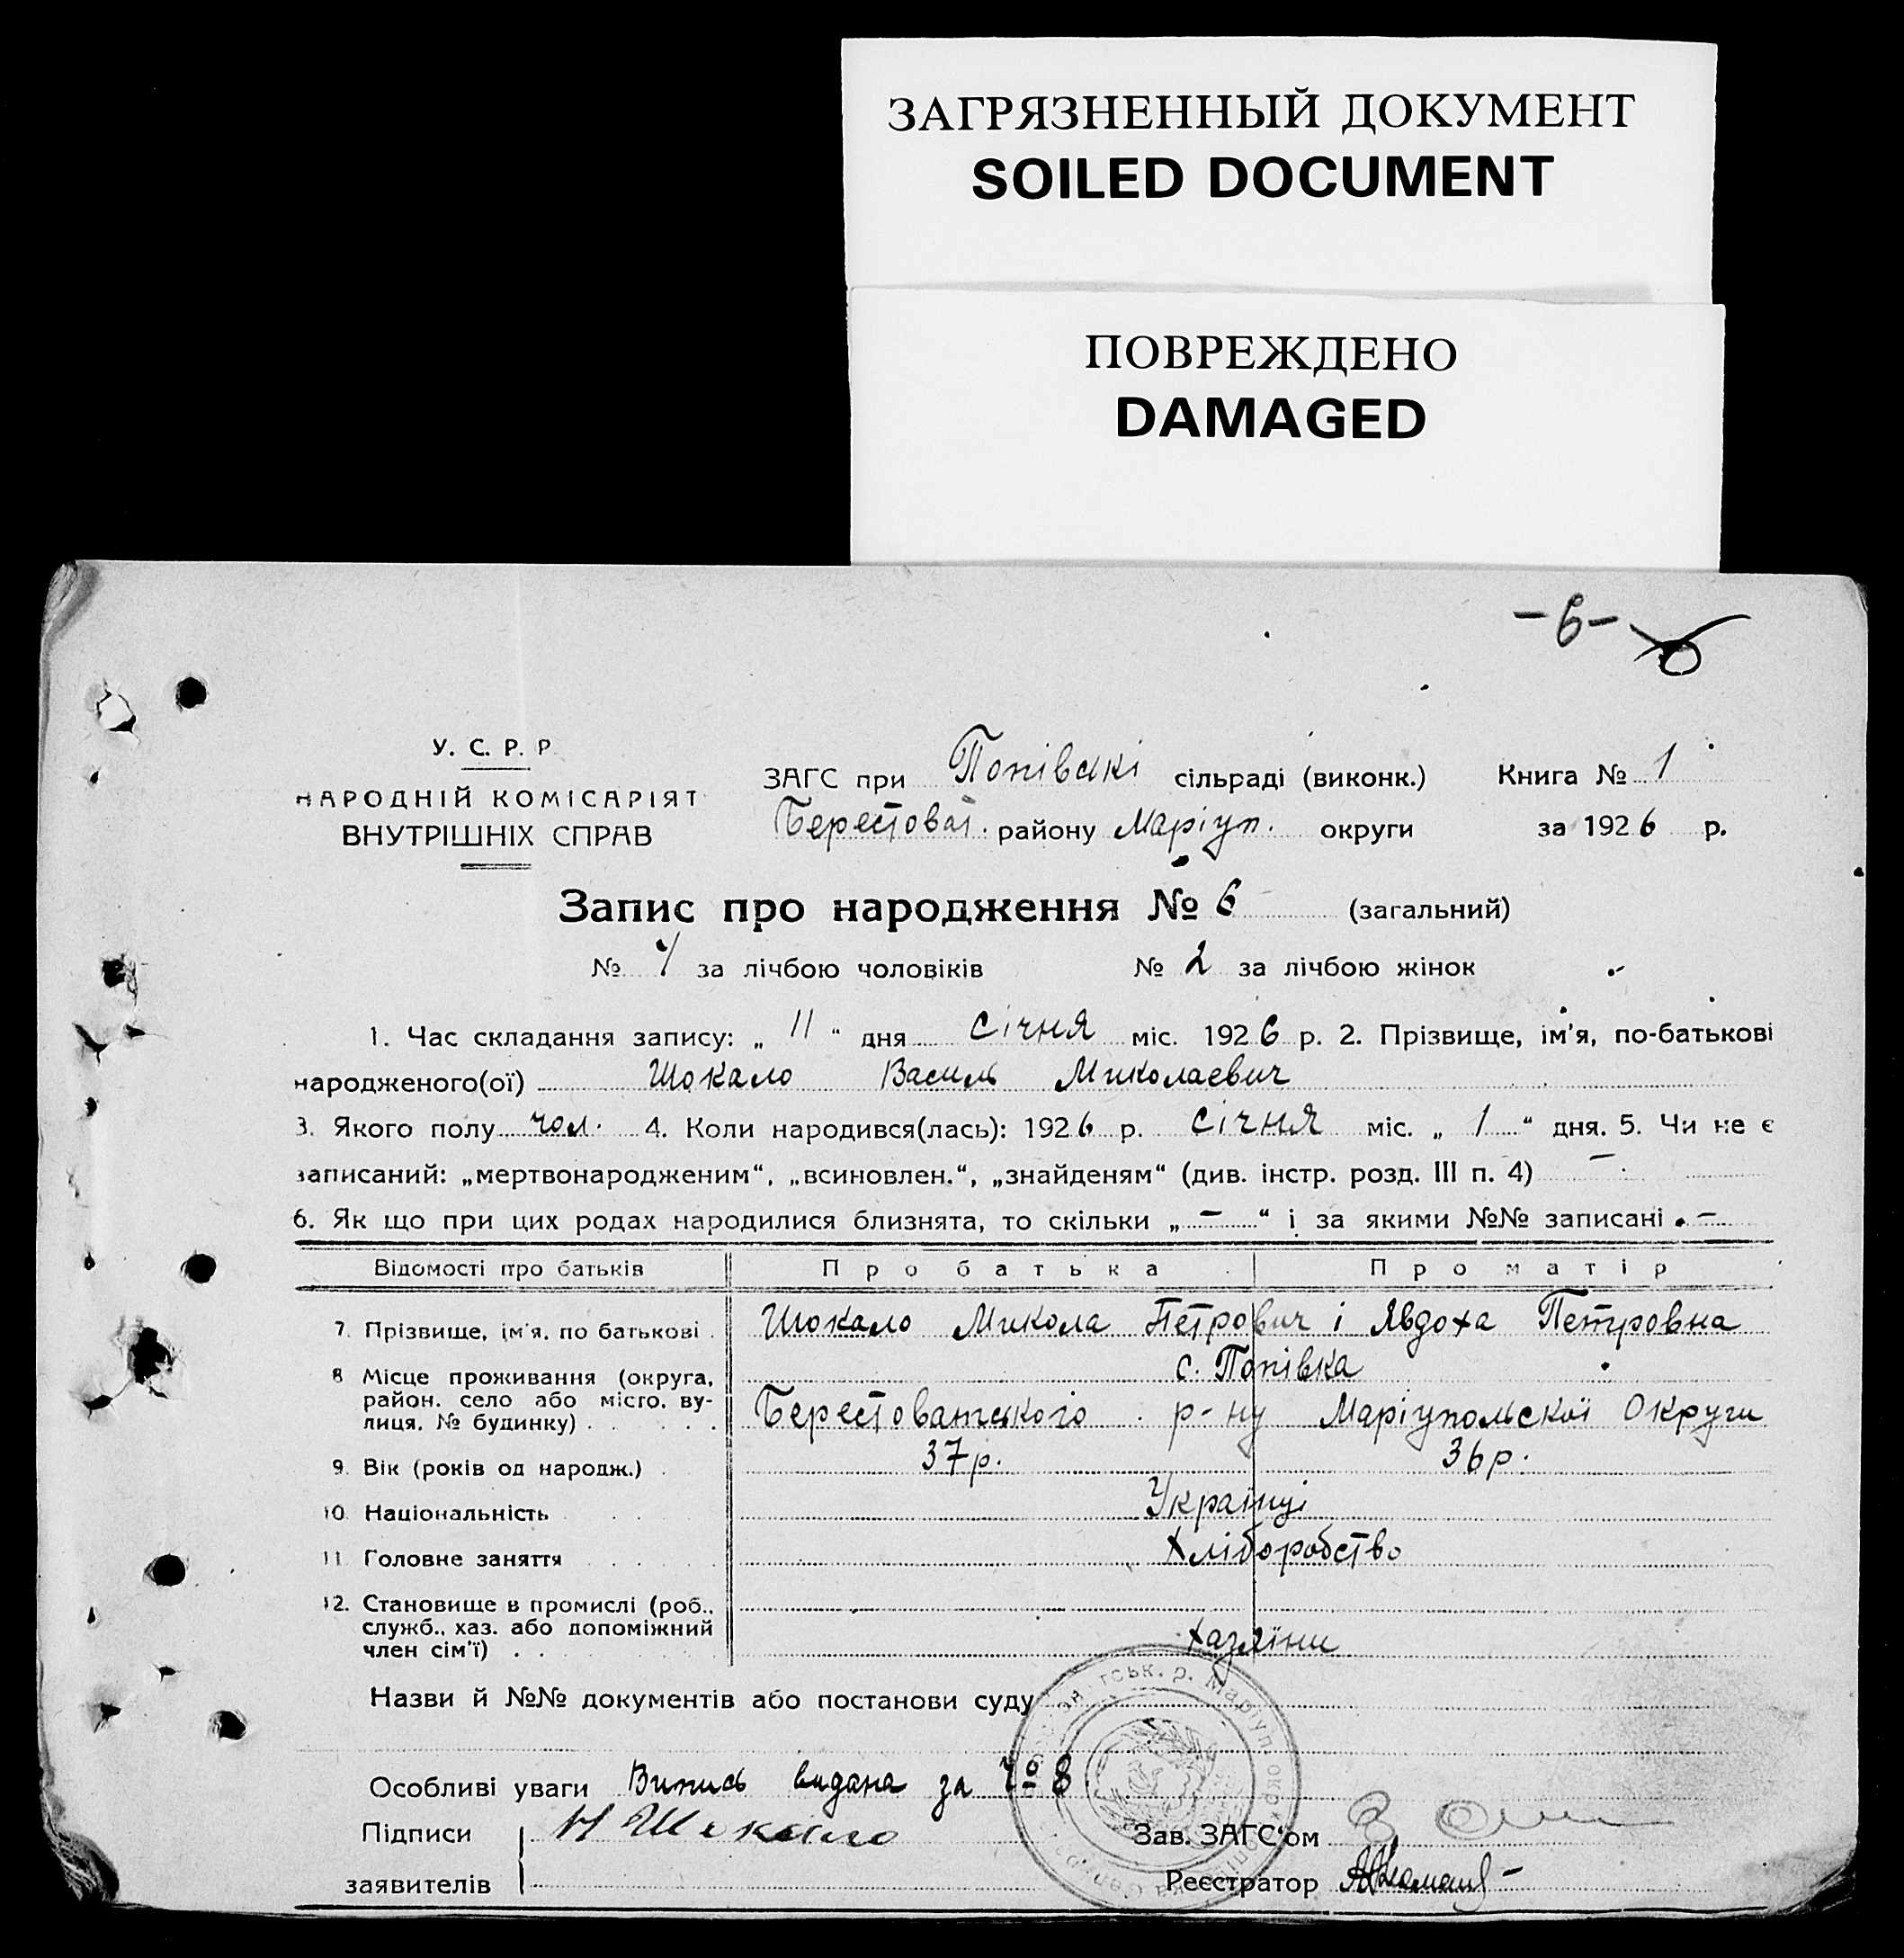 ЗАГРЯЗНЕННЫЙ ДОКУМЕНТ
SOILED DOCUMENT
ПОВРЕЖДЕНО
DAMAGED
-6-
У. С. Р. Р.
НАРОДНІЙ КОМІСАРІЯТ
ВНУТРІШНІХ СПРАВ
ЗАГС при Попівскі сільраді (виконк.) Книга № 1
Берестоват. району Маріуп. округи за 1926 р.
Запис про народження № 6 (загальний)
№ 4 за лічбою чоловіків № 2 за лічбою жінок
1. Час складання запису: „ 11 “ дня січня міс. 1926 р. 2. Прізвище, ім'я, по-батькові
народженого(ої) Шокало Василь Миколаевич
3. Якого полу чол. 4. Коли народився(лась): 1926 р. січня міс. „ 1 “ дня. 5. Чи не є
записаний: „мертвонародженим“, „всиновлен.“, „знайденям“ (див. інстр. розд. III п. 4) -
6. Як що при цих родах народилися близнята, то скільки „ - “ і за якими №№ записані -
Відомості про батьків Про батька Про матір
7. Прізвище, ім'я, по батькові Шокало Микола Петрович і Явдоха Петровна
с. Попівка
8 Місце проживання (округа, район, село або місто, ву-
лиця, № будинку) Берестоватського р-ну Маріупольскої Округи
9. Вік (років од народж.) 37 р. 36 р.
10. Національність Українці
11. Головне заняття Хліборобство
12. Становище в промислі (роб.,
служб., хаз. або допоміжний
член сім'ї) Хазяїни
Назви й №№ документів або постанови суду
Особливі уваги Випись видана за № 8
Підписи Н Шокало Зав. ЗАГС'ом
заявителів Реєстратор